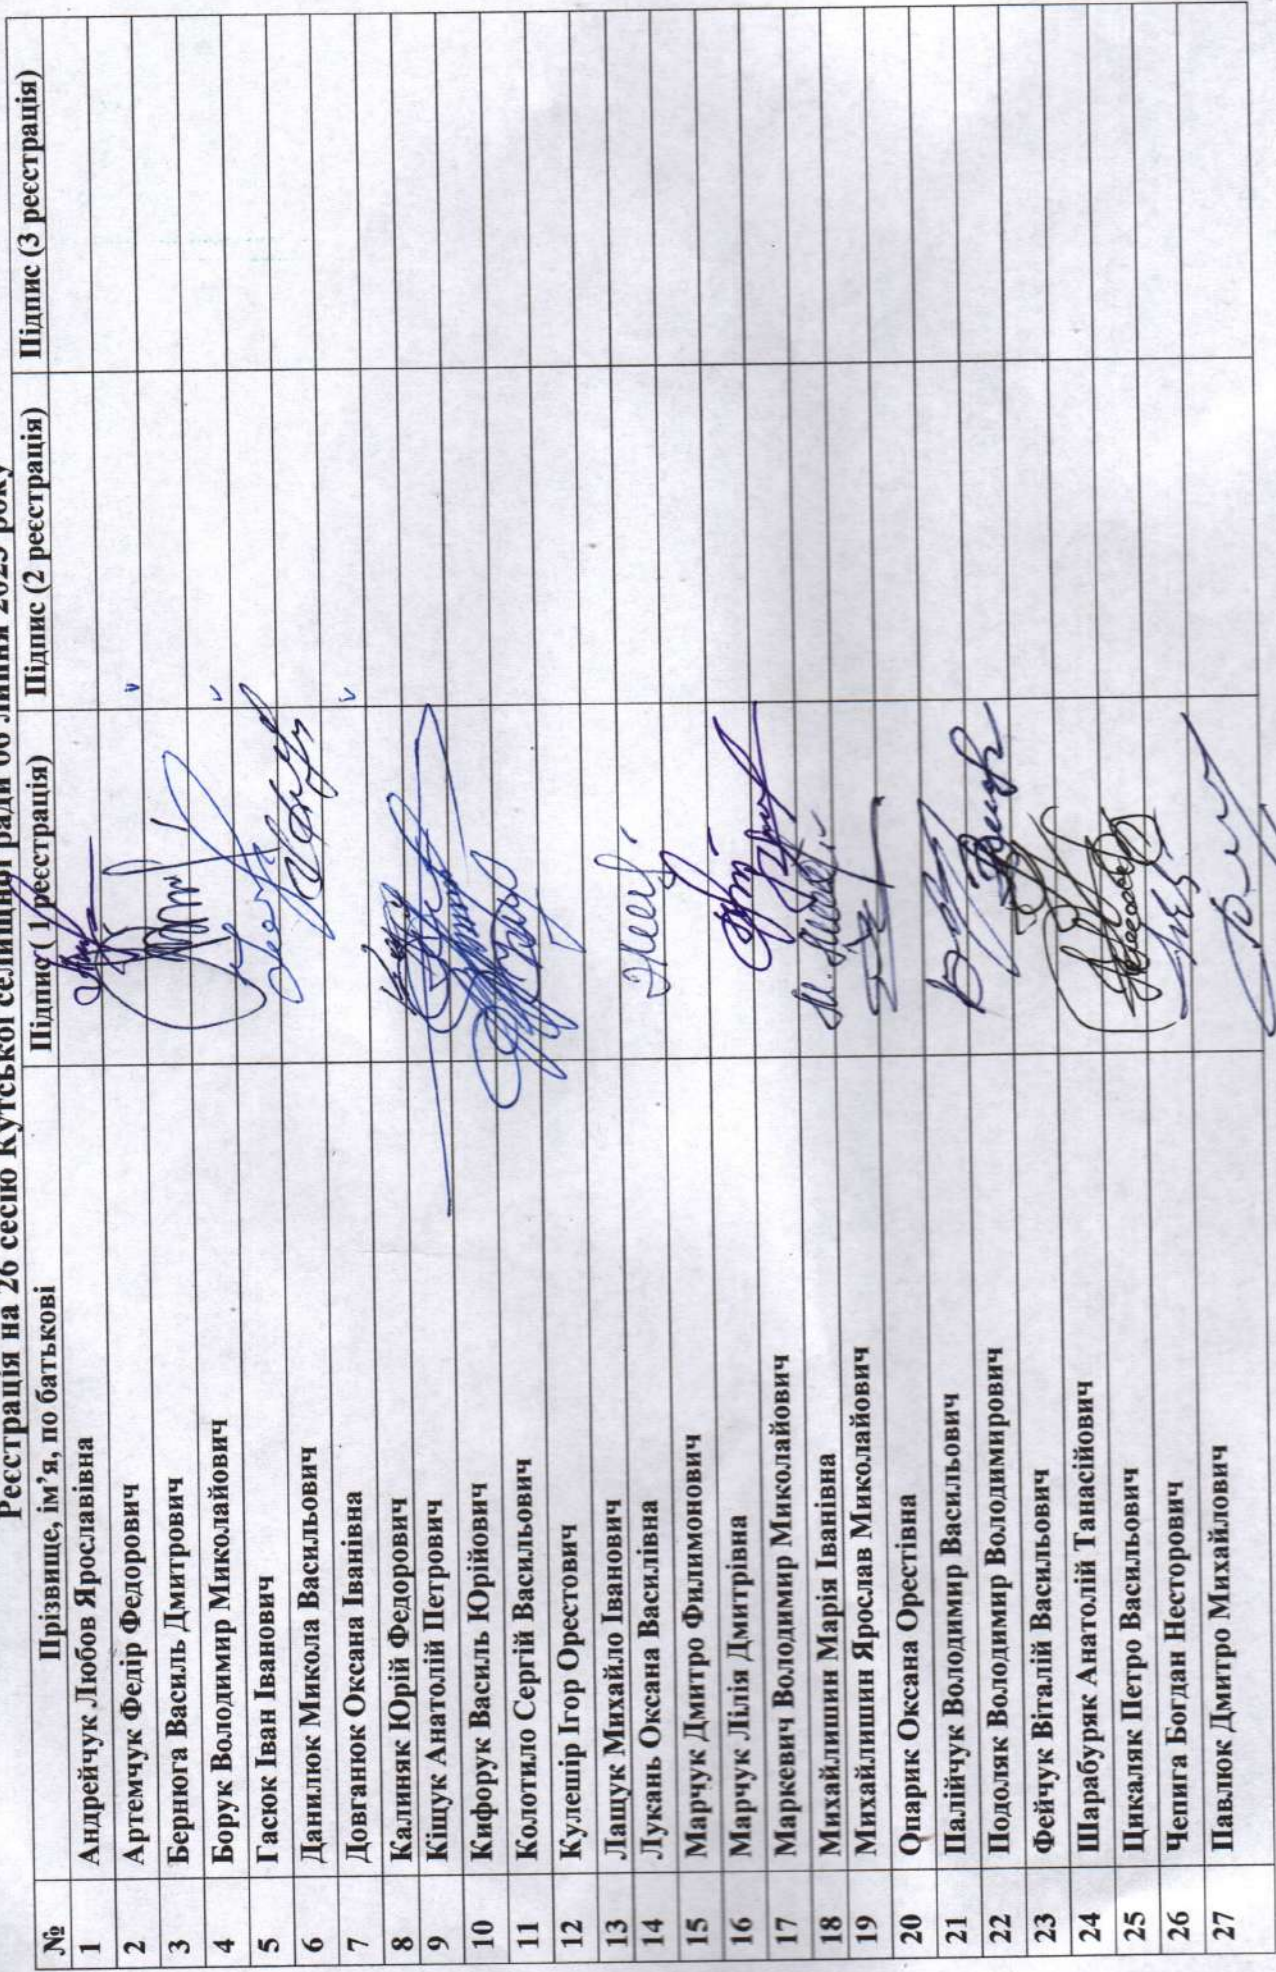 Реєстрація на 26 сесію Кутської селищної ради 06 липня 2023 року
№ Прізвище, ім’я, по батькові Підпис( 1 реєстрація) Підпис (2 реєстрація) Підпис (3 реєстрація)
1 Андрейчук Любов Ярославівна
2 Артемчук Федір Федорович v
3 Бернюга Василь Дмитрович
4 Борук Володимир Миколайович v
5 Гасюк Іван Іванович
6 Данилюк Микола Васильович
7 Довганюк Оксана Іванівна v
8 Калиняк Юрій Федорович
9 Кіщук Анатолій Петрович
10 Кифорук Василь Юрійович
11 Колотило Сергій Васильович
12 Кулешір Ігор Орестович
13 Лащук Михайло Іванович
14 Лукань Оксана Василівна
15 Марчук Дмитро Филимонович
16 Марчук Лілія Дмитрівна
17 Маркевич Володимир Миколайович
18 Михайлишин Марія Іванівна
19 Михайлишин Ярослав Миколайович
20 Опарик Оксана Орестівна
21 Палійчук Володимир Васильович
22 Подоляк Володимир Володимирович
23 Фейчук Віталій Васильович
24 Шарабуряк Анатолій Танасійович
25 Цикаляк Петро Васильович
26 Чепига Богдан Несторович
27 Павлюк Дмитро Михайлович